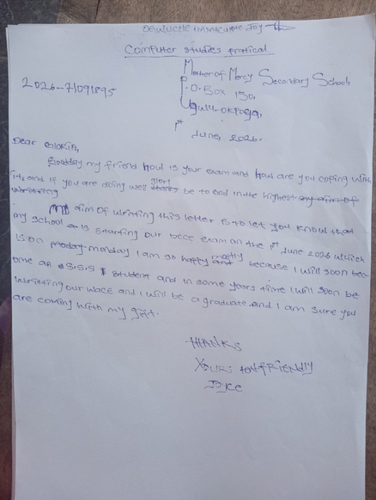 Immaculate Joy
Computer studies pratical
Mother of Mercy Secondary School
2026-71091895
P.O.Box 150,
1st June, 2026.
Dear Gloria,
Goodday my friend how is your exam and how are you coping with
it, and if you are doing well glory be to God in the highest any aim of
writeing
My aim of writing this letter is to let you know that
my school is starting our bece exam on the 1st June 2026 which
is on monday I am so happy because I will soon bec
ome an SSS1 Student and in some years time I will soon be
writeing our wace and I will be a graduate and I am sure you
are coming with my gift.
THANKS
FRIENDLY
Joyce